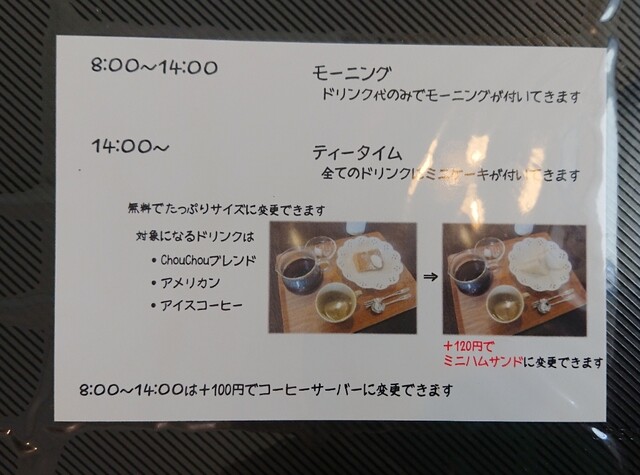 8:00～14:00 モーニング
ドリンク代のみでモーニングが付いてきます
14:00～ ティータイム
全てのドリンクにミニケーキが付いてきます
無料でたっぷりサイズに変更できます
対象になるドリンクは
・ChouChouブレンド
・アメリカン
・アイスコーヒー
⇒
＋120円で
ミニハムサンドに変更できます
8:00～14:00は＋100円でコーヒーサーバーに変更できます